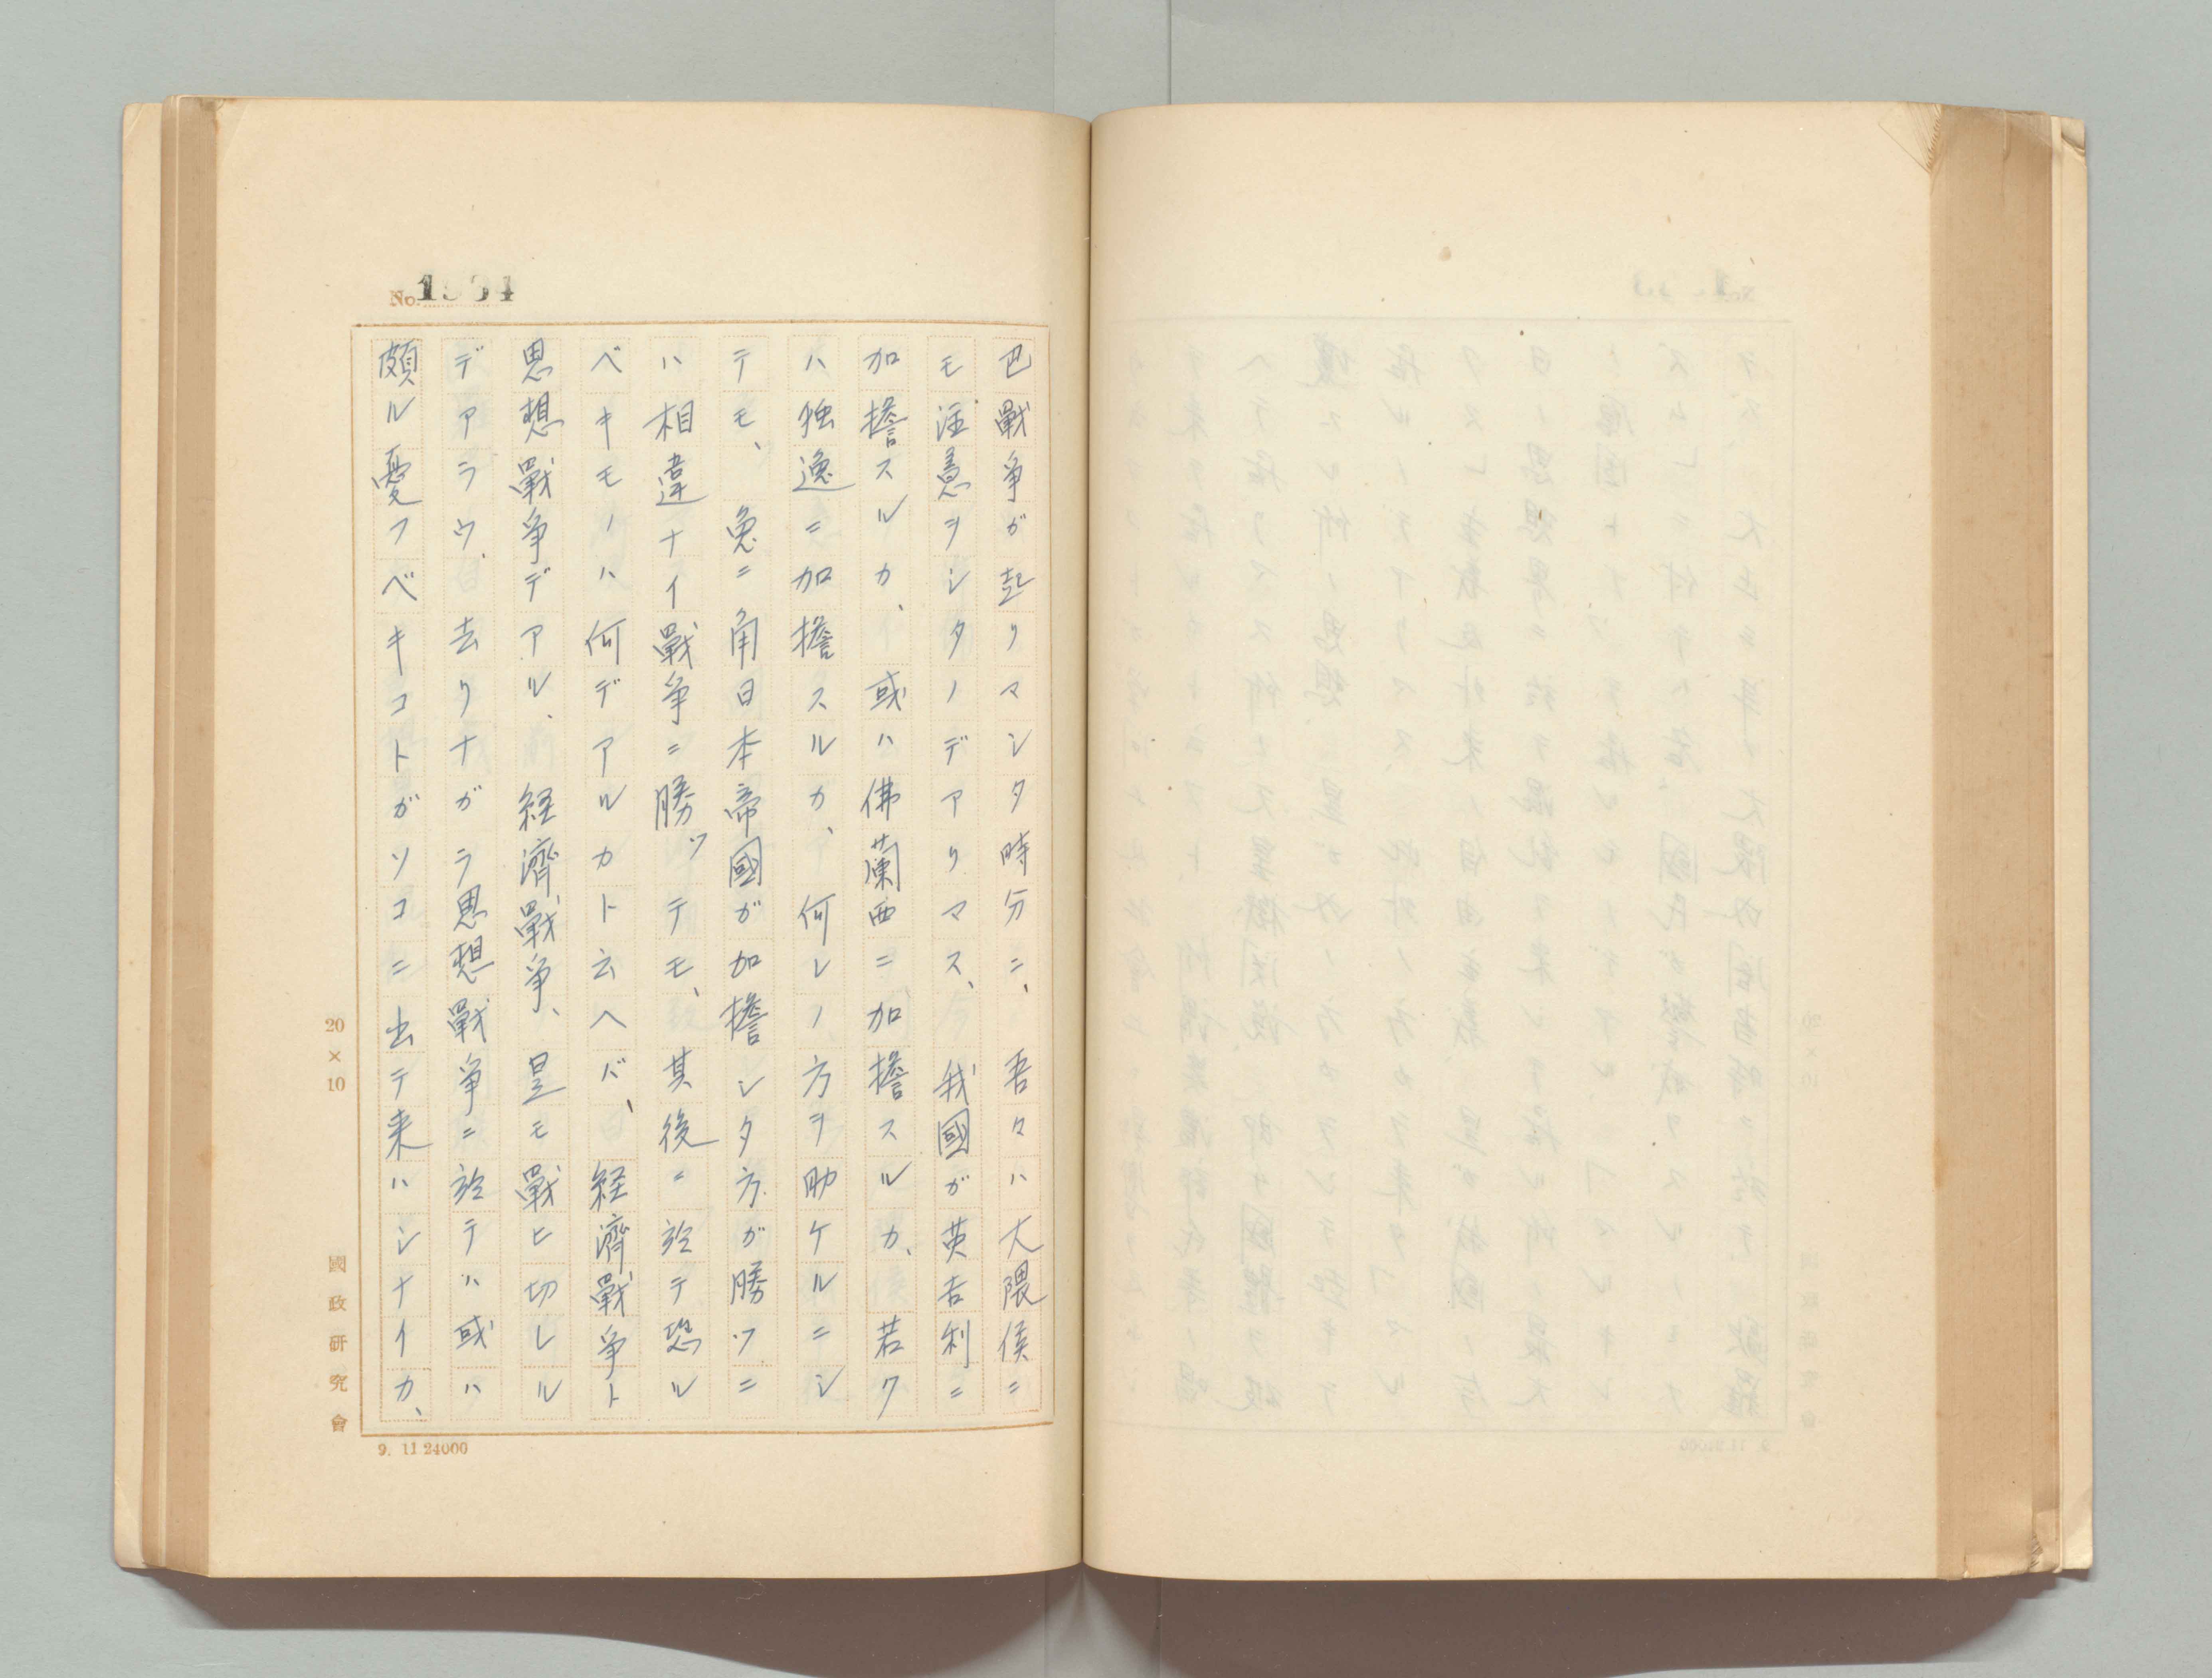 No. 1934
巴戰争が起リマシタ時分ニ、吾々ハ大隈侯ニ
モ注意ヲシタノデアリマス、我國が英吉利ニ
加擔スルカ、或ハ佛蘭西ニ加擔スルカ、若ク
ハ独逸ニ加擔スルカ、何レノ方ヲ助ケルニシ
テモ、兎ニ角日本帝國が加擔シタ方が勝ツニ
ハ相違ナイ戰争ニ勝ッテモ、其後ニ於テ恐ル
ベキモノハ何デアルカト云ヘバ、経濟戰争ト
思想戰争デアル、経濟戰争、是モ戰ヒ切レル
デアラウ、去リナガラ思想戰争ニ於テハ或ハ
頗ル憂フベキコトガソコニ出テ来ハシナイカ、
20×10
國政研究會
9. 11 24000